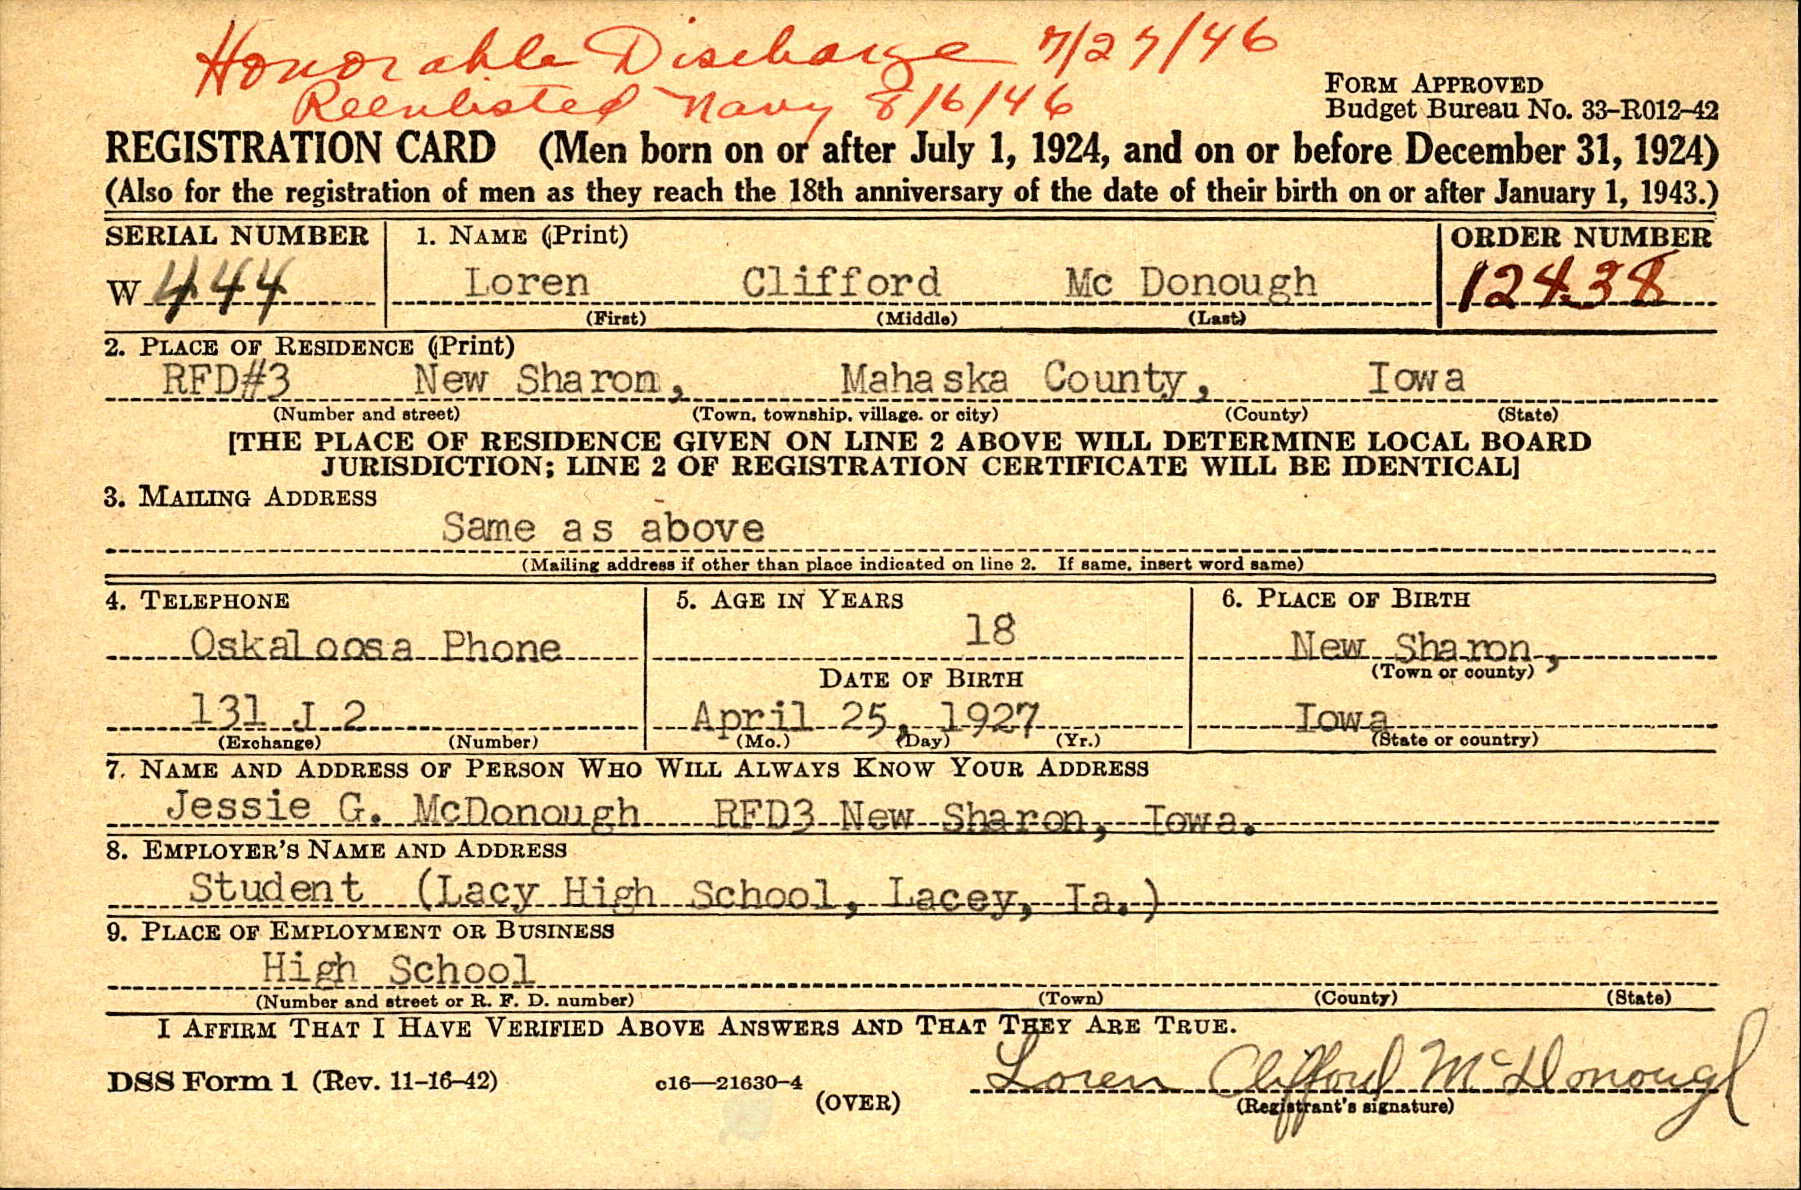 Honorable Discharge 7/27/46
Reenlisted Navy 8/6/46
FORM APPROVED
Budget Bureau No. 33-R012-42
REGISTRATION CARD (Men born on or after July 1, 1924, and on or before December 31, 1924)
(Also for the registration of men as they reach the 18th anniversary of the date of their birth on or after January 1, 1943.)
SERIAL NUMBER 1. NAME (Print) ORDER NUMBER
W 444 Loren Clifford Mc Donough 12438
(First) (Middle) (Last)
2. PLACE OF RESIDENCE (Print)
RFD#3 New Sharon, Mahaska County, Iowa
(Number and street) (Town, township, village, or city) (County) (State)
[THE PLACE OF RESIDENCE GIVEN ON LINE 2 ABOVE WILL DETERMINE LOCAL BOARD
JURISDICTION; LINE 2 OF REGISTRATION CERTIFICATE WILL BE IDENTICAL]
3. MAILING ADDRESS
Same as above
(Mailing address if other than place indicated on line 2. If same, insert word same)
4. TELEPHONE 5. AGE IN YEARS 6. PLACE OF BIRTH
Oskaloosa Phone 18 New Sharon,
(Town or county)
DATE OF BIRTH
131 J 2 April 25, 1927 Iowa
(Exchange) (Number) (Mo.) (Day) (Yr.) (State or country)
7. NAME AND ADDRESS OF PERSON WHO WILL ALWAYS KNOW YOUR ADDRESS
Jessie G. McDonough RFD3 New Sharon, Iowa.
8. EMPLOYER'S NAME AND ADDRESS
Student (Lacy High School, Lacey, Ia.)
9. PLACE OF EMPLOYMENT OR BUSINESS
High School
(Number and street or R. F. D. number) (Town) (County) (State)
I AFFIRM THAT I HAVE VERIFIED ABOVE ANSWERS AND THAT THEY ARE TRUE.
DSS Form 1 (Rev. 11-16-42) c16—21630-4 (OVER) Loren Clifford McDonough
(Registrant's signature)